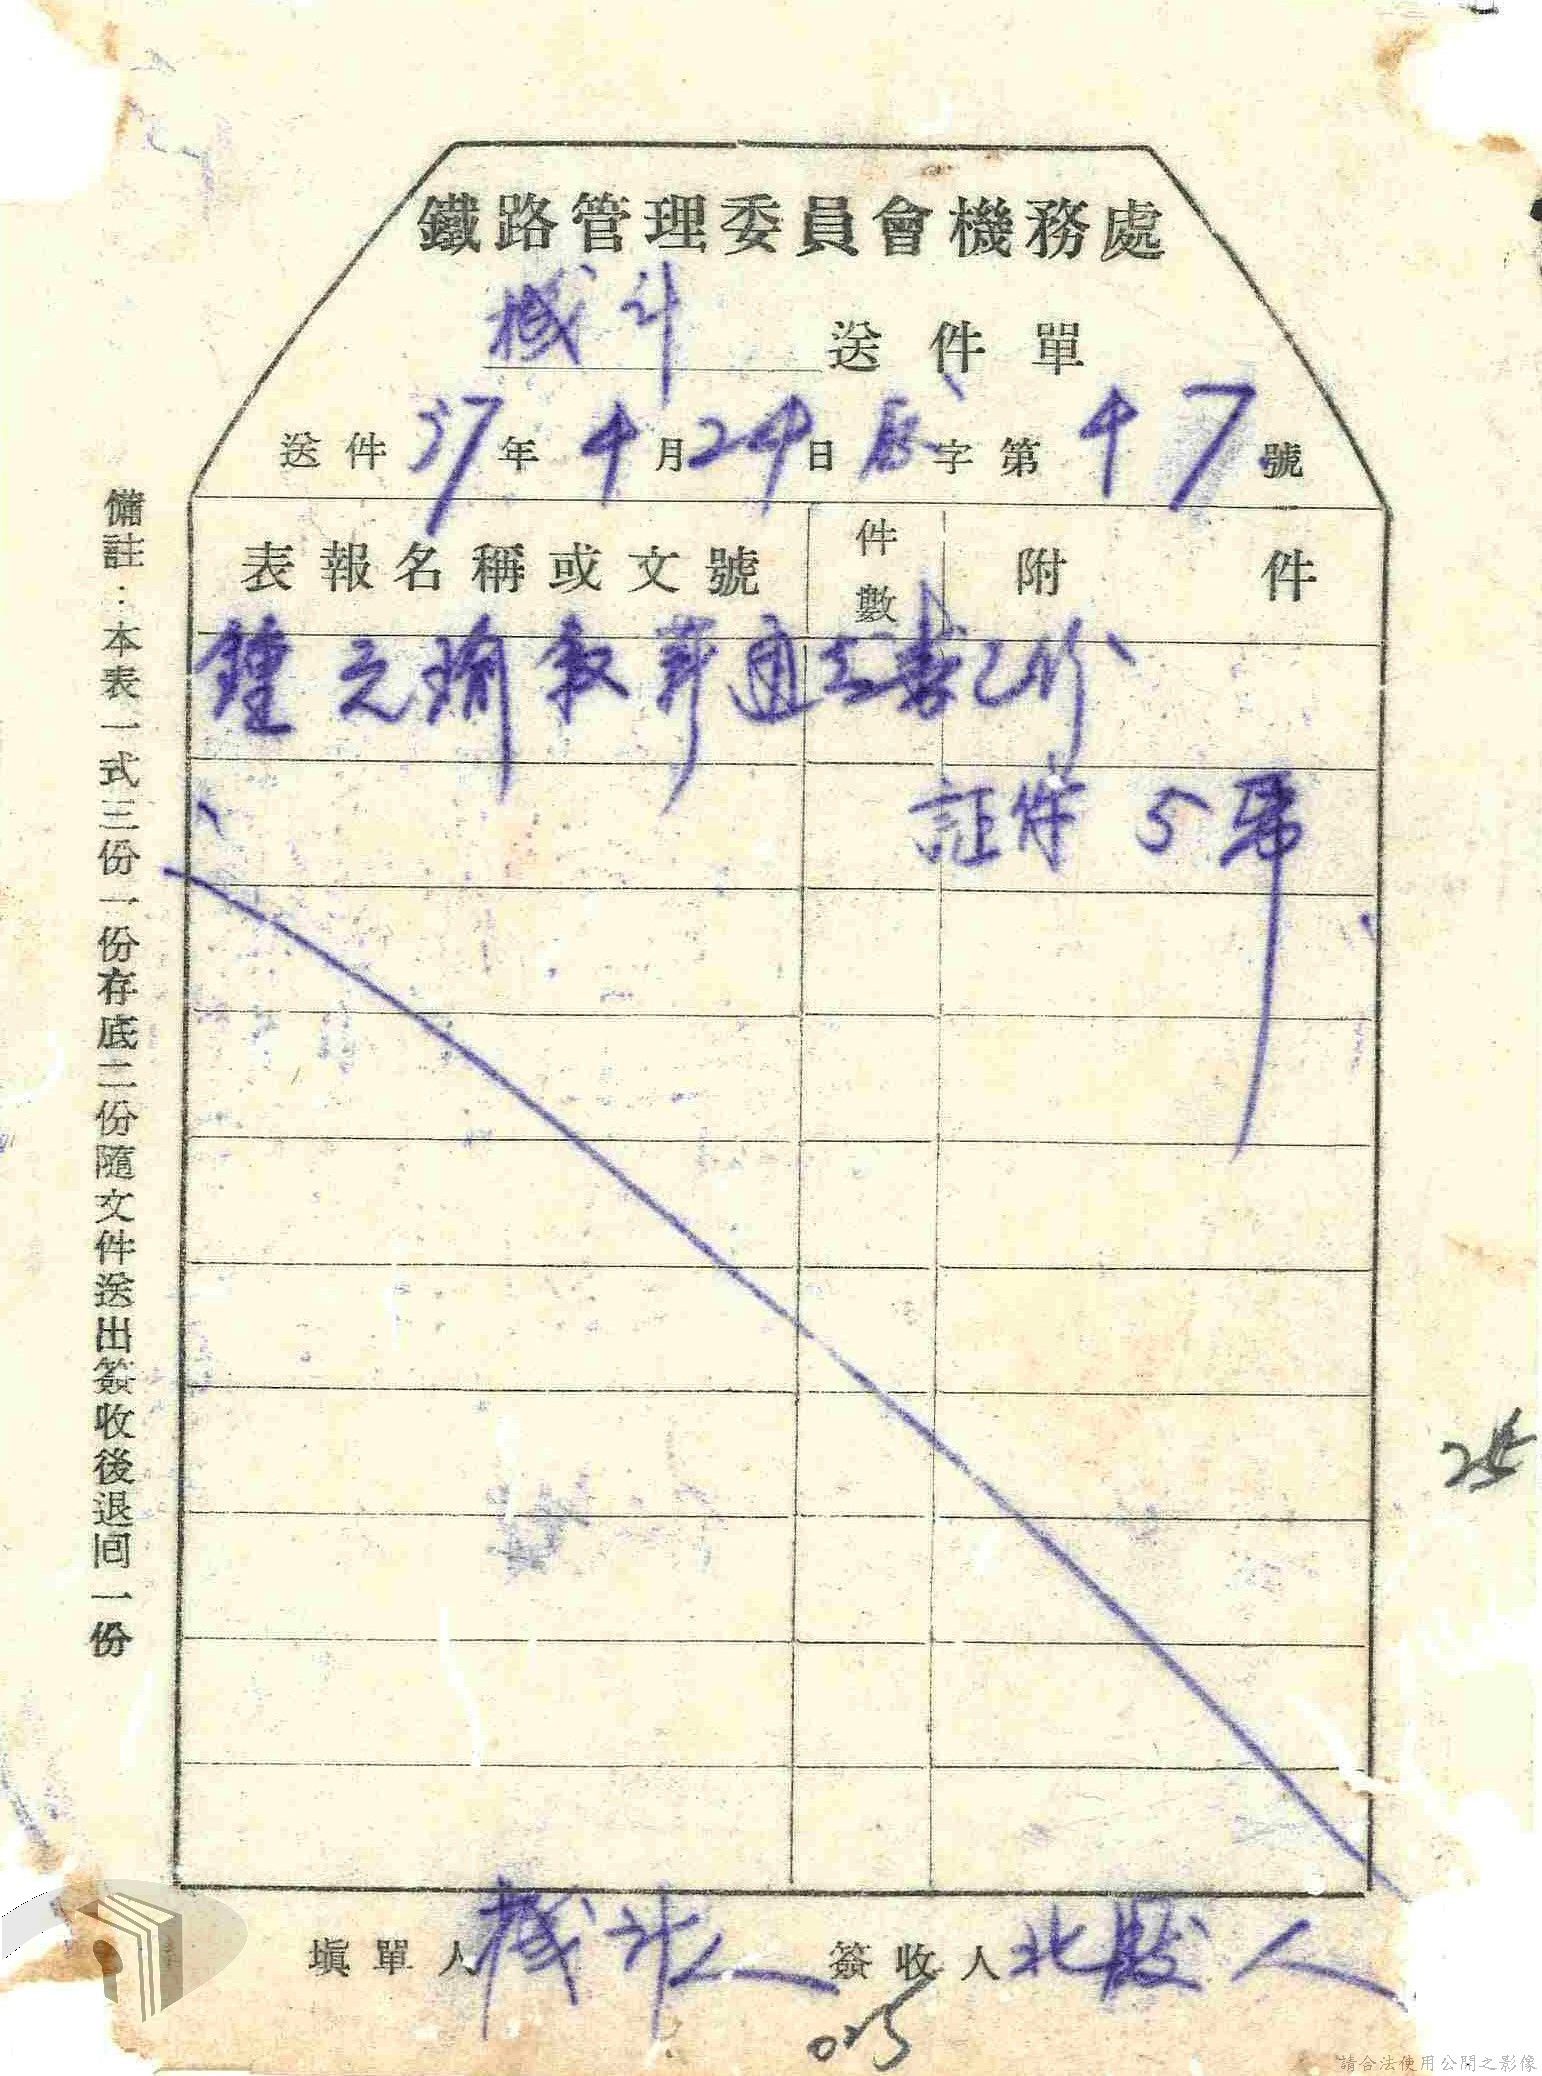 鐵路管理委員會機務處
機計 送件單
送件37年4月24日 字第47號
表報名稱或文號 件數 附件
鍾元瑜敘薪通知書乙份
証件5號
備註：本表一式三份一份存底二份隨文件送出簽收後退回一份
25
填單人機計人 簽收人北段人
025
請合法使用公開之影像